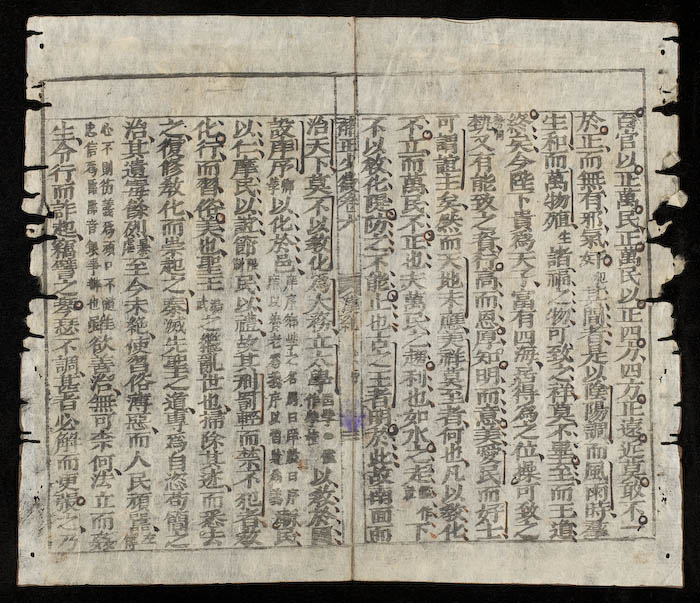 百官以正萬民正萬民以正四方四方正遠近莫敢不一
於正而無有邪氣奸其間者是以陰陽調而風雨時羣
生和而萬物殖諸福之物可致之祥莫不畢至而王道
終矣今陛下貴爲天子富有四海居得爲之位操可致之
勢又有能致之資行高而恩厚知明而意美愛民而好士
可謂誼主矣然而天地未應美祥莫至者何也凡以教化
不立而萬民不正也夫萬民之從利也如水之走下
不以教化隄防之不能止也古之王者明於此故南面而
治天下莫不以教化爲大務立大學以教於國
設庠序以化於邑漸民
以仁摩民以誼節民以禮故其刑罰輕而禁不犯者教
化行而習俗美也聖王之繼亂世也掃除其迹而悉去
之復修教化而崇起之秦滅先聖之道專爲自恣苟簡之
治其遺毒餘烈至今未滅使習俗薄惡而人民頑嚚
心不則德義爲頑口不道
忠信爲嚚 雖欲善治無可奈何法立而姦
生令行而詐起竊譬之琴瑟不調甚者必解而更張之